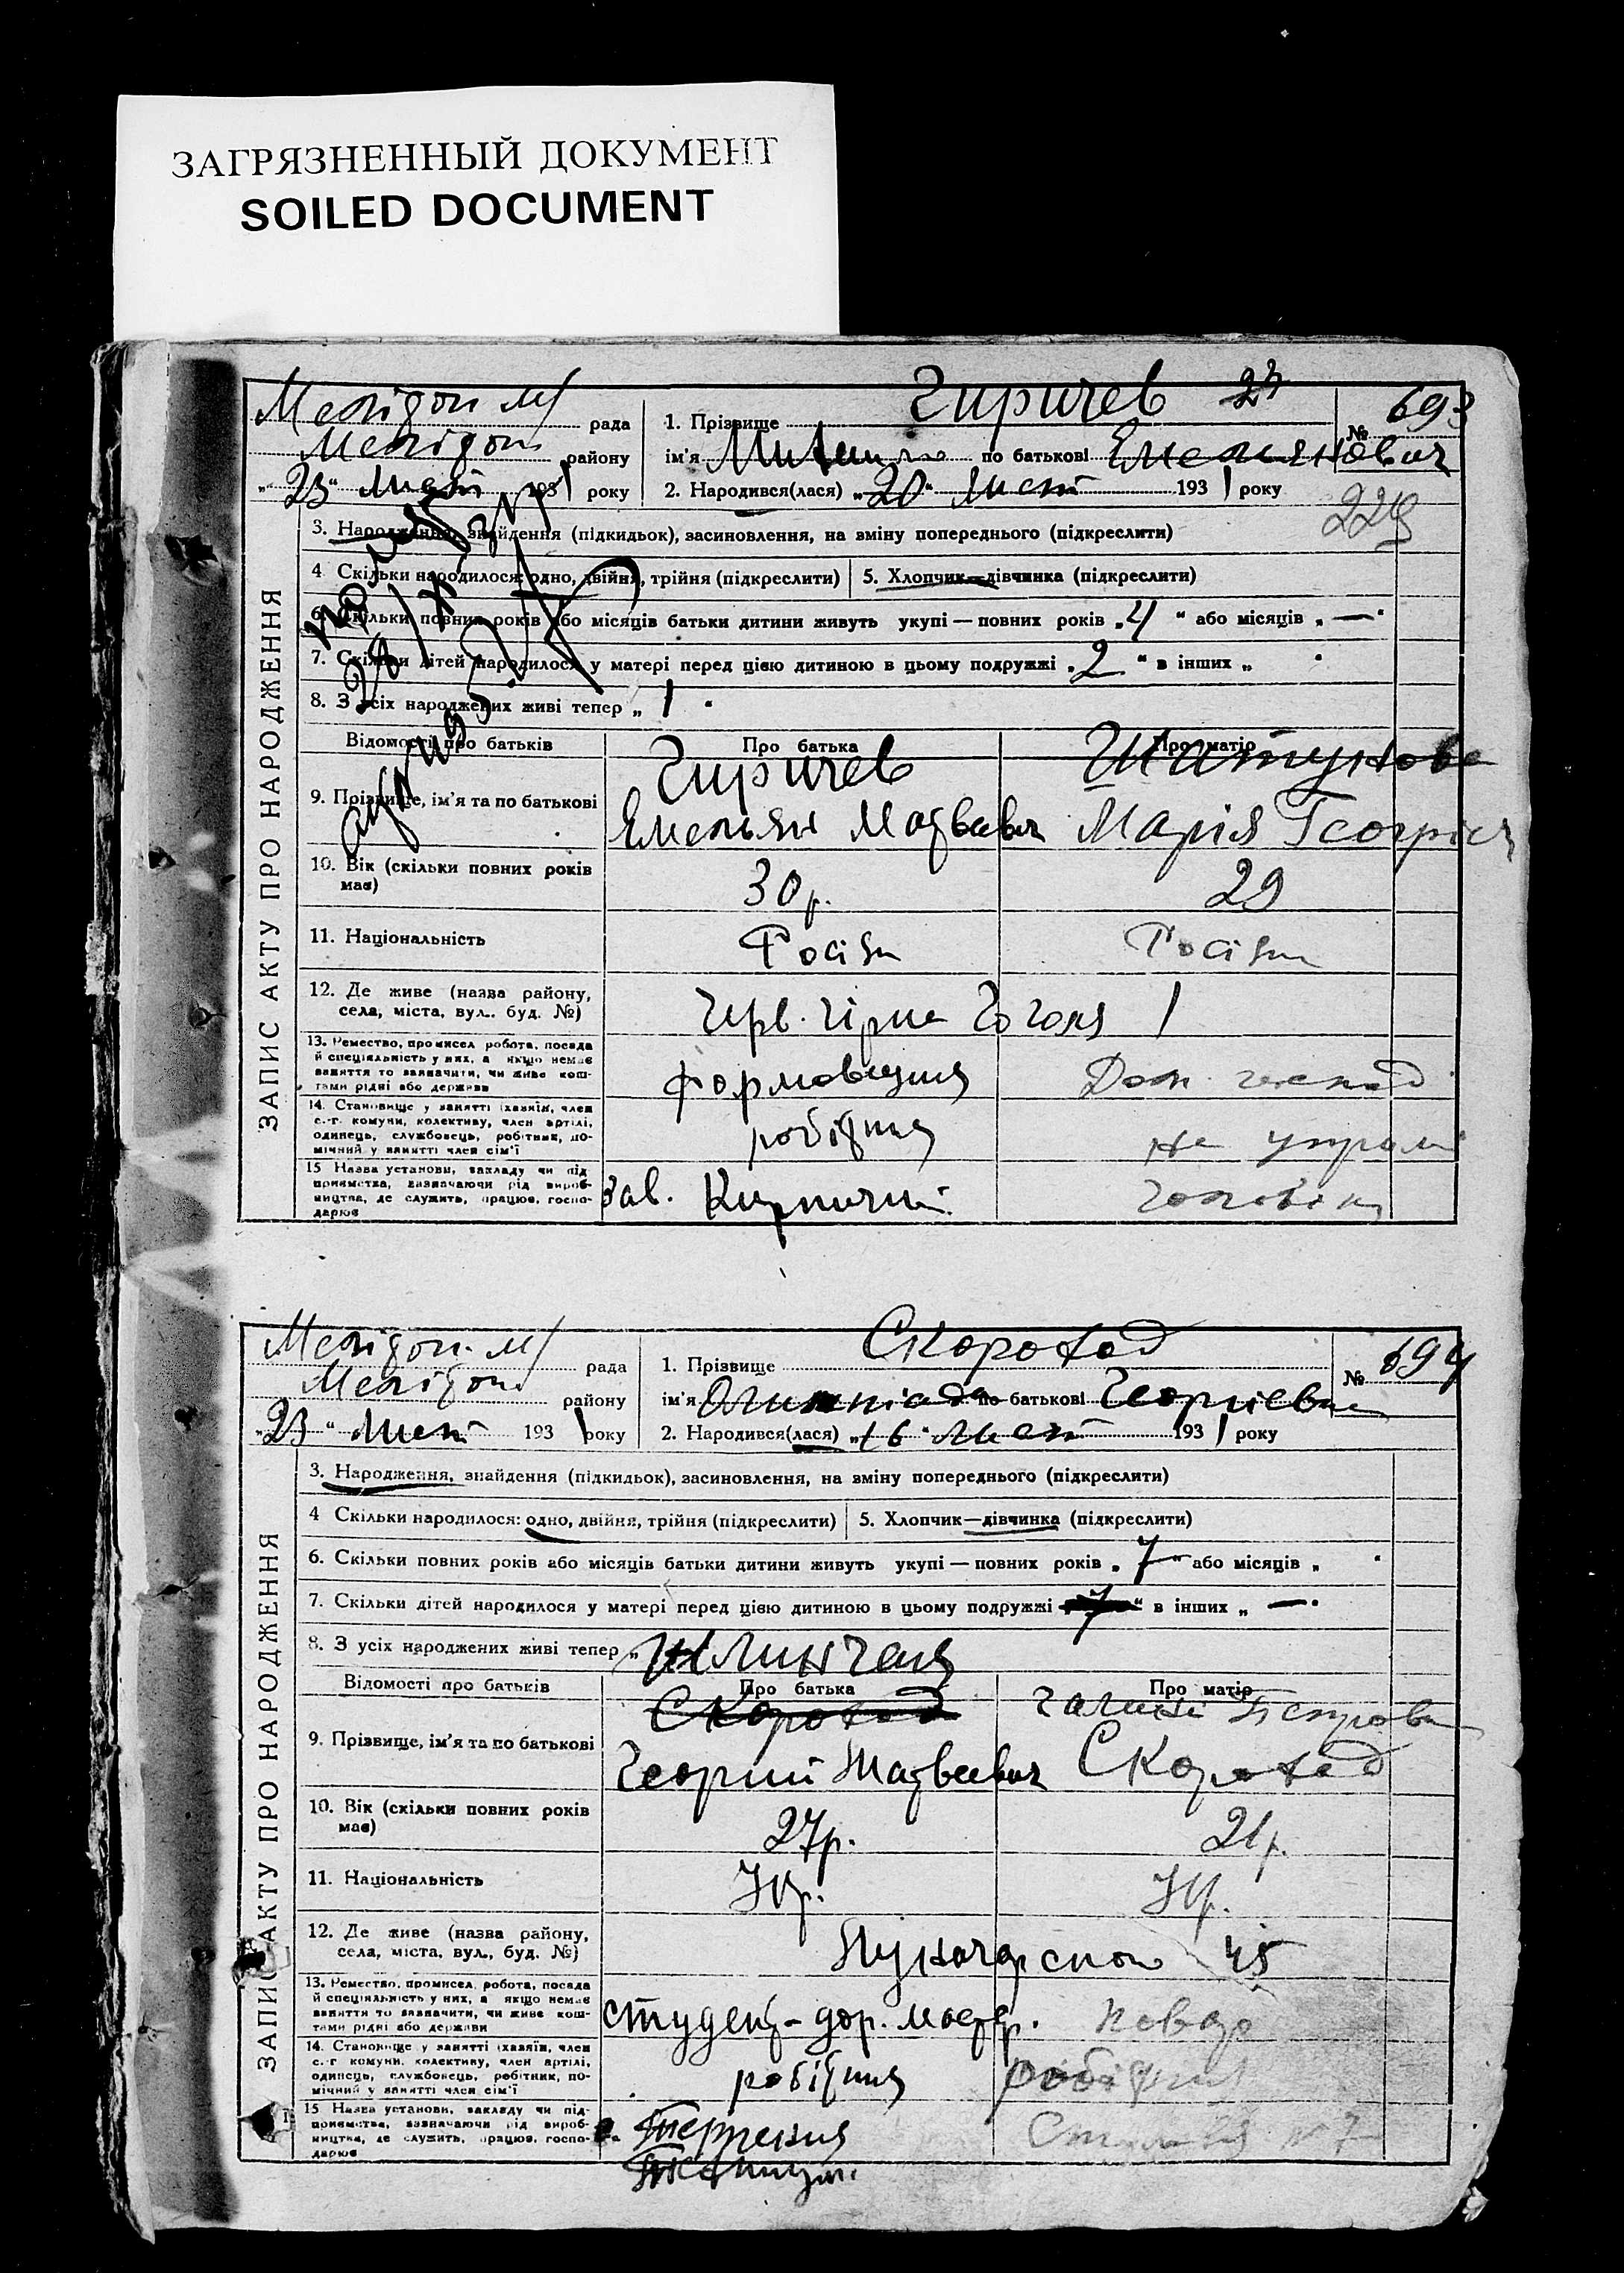 ЗАГРЯЗНЕННЫЙ ДОКУМЕНТ
SOILED DOCUMENT
ЗАПИС АКТУ ПРО НАРОДЖЕННЯ
рада
району
"23" Лист 1931 року
1. Прізвище Гиричев 23
№ 693
ім'я по батькові Емельянович
2. Народився(лася) "20" Лист 1931 року
229
3. Народження, знайдення (підкидьок), засиновлення, на зміну попереднього (підкреслити)
4 Скільки народилося: одно, двійня, трійня (підкреслити) 5. Хлопчик—дівчинка (підкреслити)
6. Скільки повних років або місяців батьки дитини живуть укупі — повних років "4" або місяців "—"
7. Скільки дітей народилося у матері перед цією дитиною в цьому подружжі "2" в інших " "
8. З усіх народжених живі тепер "1"
Відомості про батьків Про батька Про матір
9. Прізвище, ім'я та по батькові
Гиричев
Емельян Матвеевич Марія Георгіев
10. Вік (скільки повних років має) 30 р. 29
11. Національність Росіян Росіян
12. Де живе (назва району, села, міста, вул., буд. №) Черв. Гірка Гоголя 1
13. Ремество, промисел робота, посада й спеціяльність у них, а якщо немає заняття то зазначити, чи живе коштами рідні або держави
формовщик Дом.
14. Становище у занятті (хазяїн, член с.-г. комуни, колективу, член артілі, одинець, службовець, робітник, помічний у занятті член сім'ї
робітник на утрим
15 Назва установи, закладу чи підприємства, зазначаючи рід виробництва, де служить, працює, господарює
Зав. Кирпичний чоловіка
ЗАПИС АКТУ ПРО НАРОДЖЕННЯ
рада
району
"23" Лист 1931 року
1. Прізвище Скороход
№ 694
ім'я Олимпіада по батькові Георгіевна
2. Народився(лася) "16" Лист 1931 року
3. Народження, знайдення (підкидьок), засиновлення, на зміну попереднього (підкреслити)
4 Скільки народилося: одно, двійня, трійня (підкреслити) 5. Хлопчик—дівчинка (підкреслити)
6. Скільки повних років або місяців батьки дитини живуть укупі — повних років "7" або місяців " "
7. Скільки дітей народилося у матері перед цією дитиною в цьому подружжі в інших "—"
8. З усіх народжених живі тепер "
Відомості про батьків Про батька Про матір
9. Прізвище, ім'я та по батькові
Скороход Галина Петровн
Георгий Матвеевич Скороход
10. Вік (скільки повних років має) 27 р. 21 р.
11. Національність Укр. Укр.
12. Де живе (назва району, села, міста, вул., буд. №) Луначарского 45
13. Ремество, промисел, робота, посада й спеціяльність у них, а якщо немає заняття то зазначити, чи живе коштами рідні або держави
студент - дор. майстр.
14. Становище у занятті (хазяїн, член с.-г. комуни, колективу, член артілі, одинець, службовець, робітник, помічний у занятті член сім'ї
робітник робітник
15 Назва установи, закладу чи підприємства, зазначаючи рід виробництва, де служить, працює, господарює
№ 7